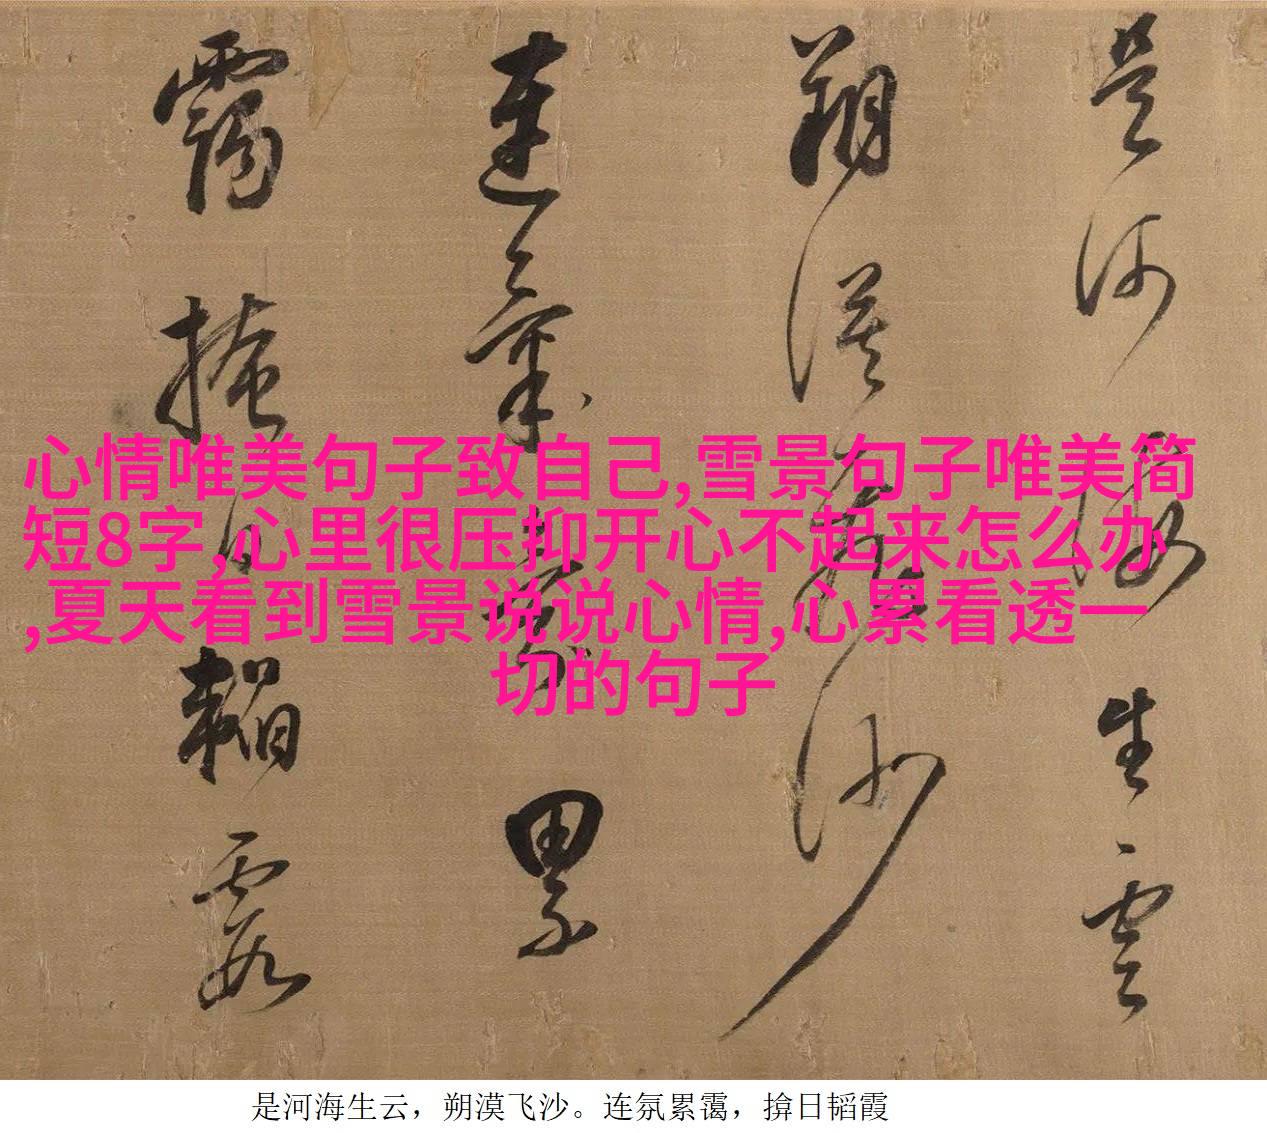 是河海生云
朔漠飞沙
连氛累
霭掩日韬霞
心情唯美句子致自己,雪景句子唯美简
短8字,心里很压抑开心不起来怎么办
,夏天看到雪景说说心情,心累看透一
切的句子
是河海生云，朔漠飞沙。连氛累霭，揜日韬霞